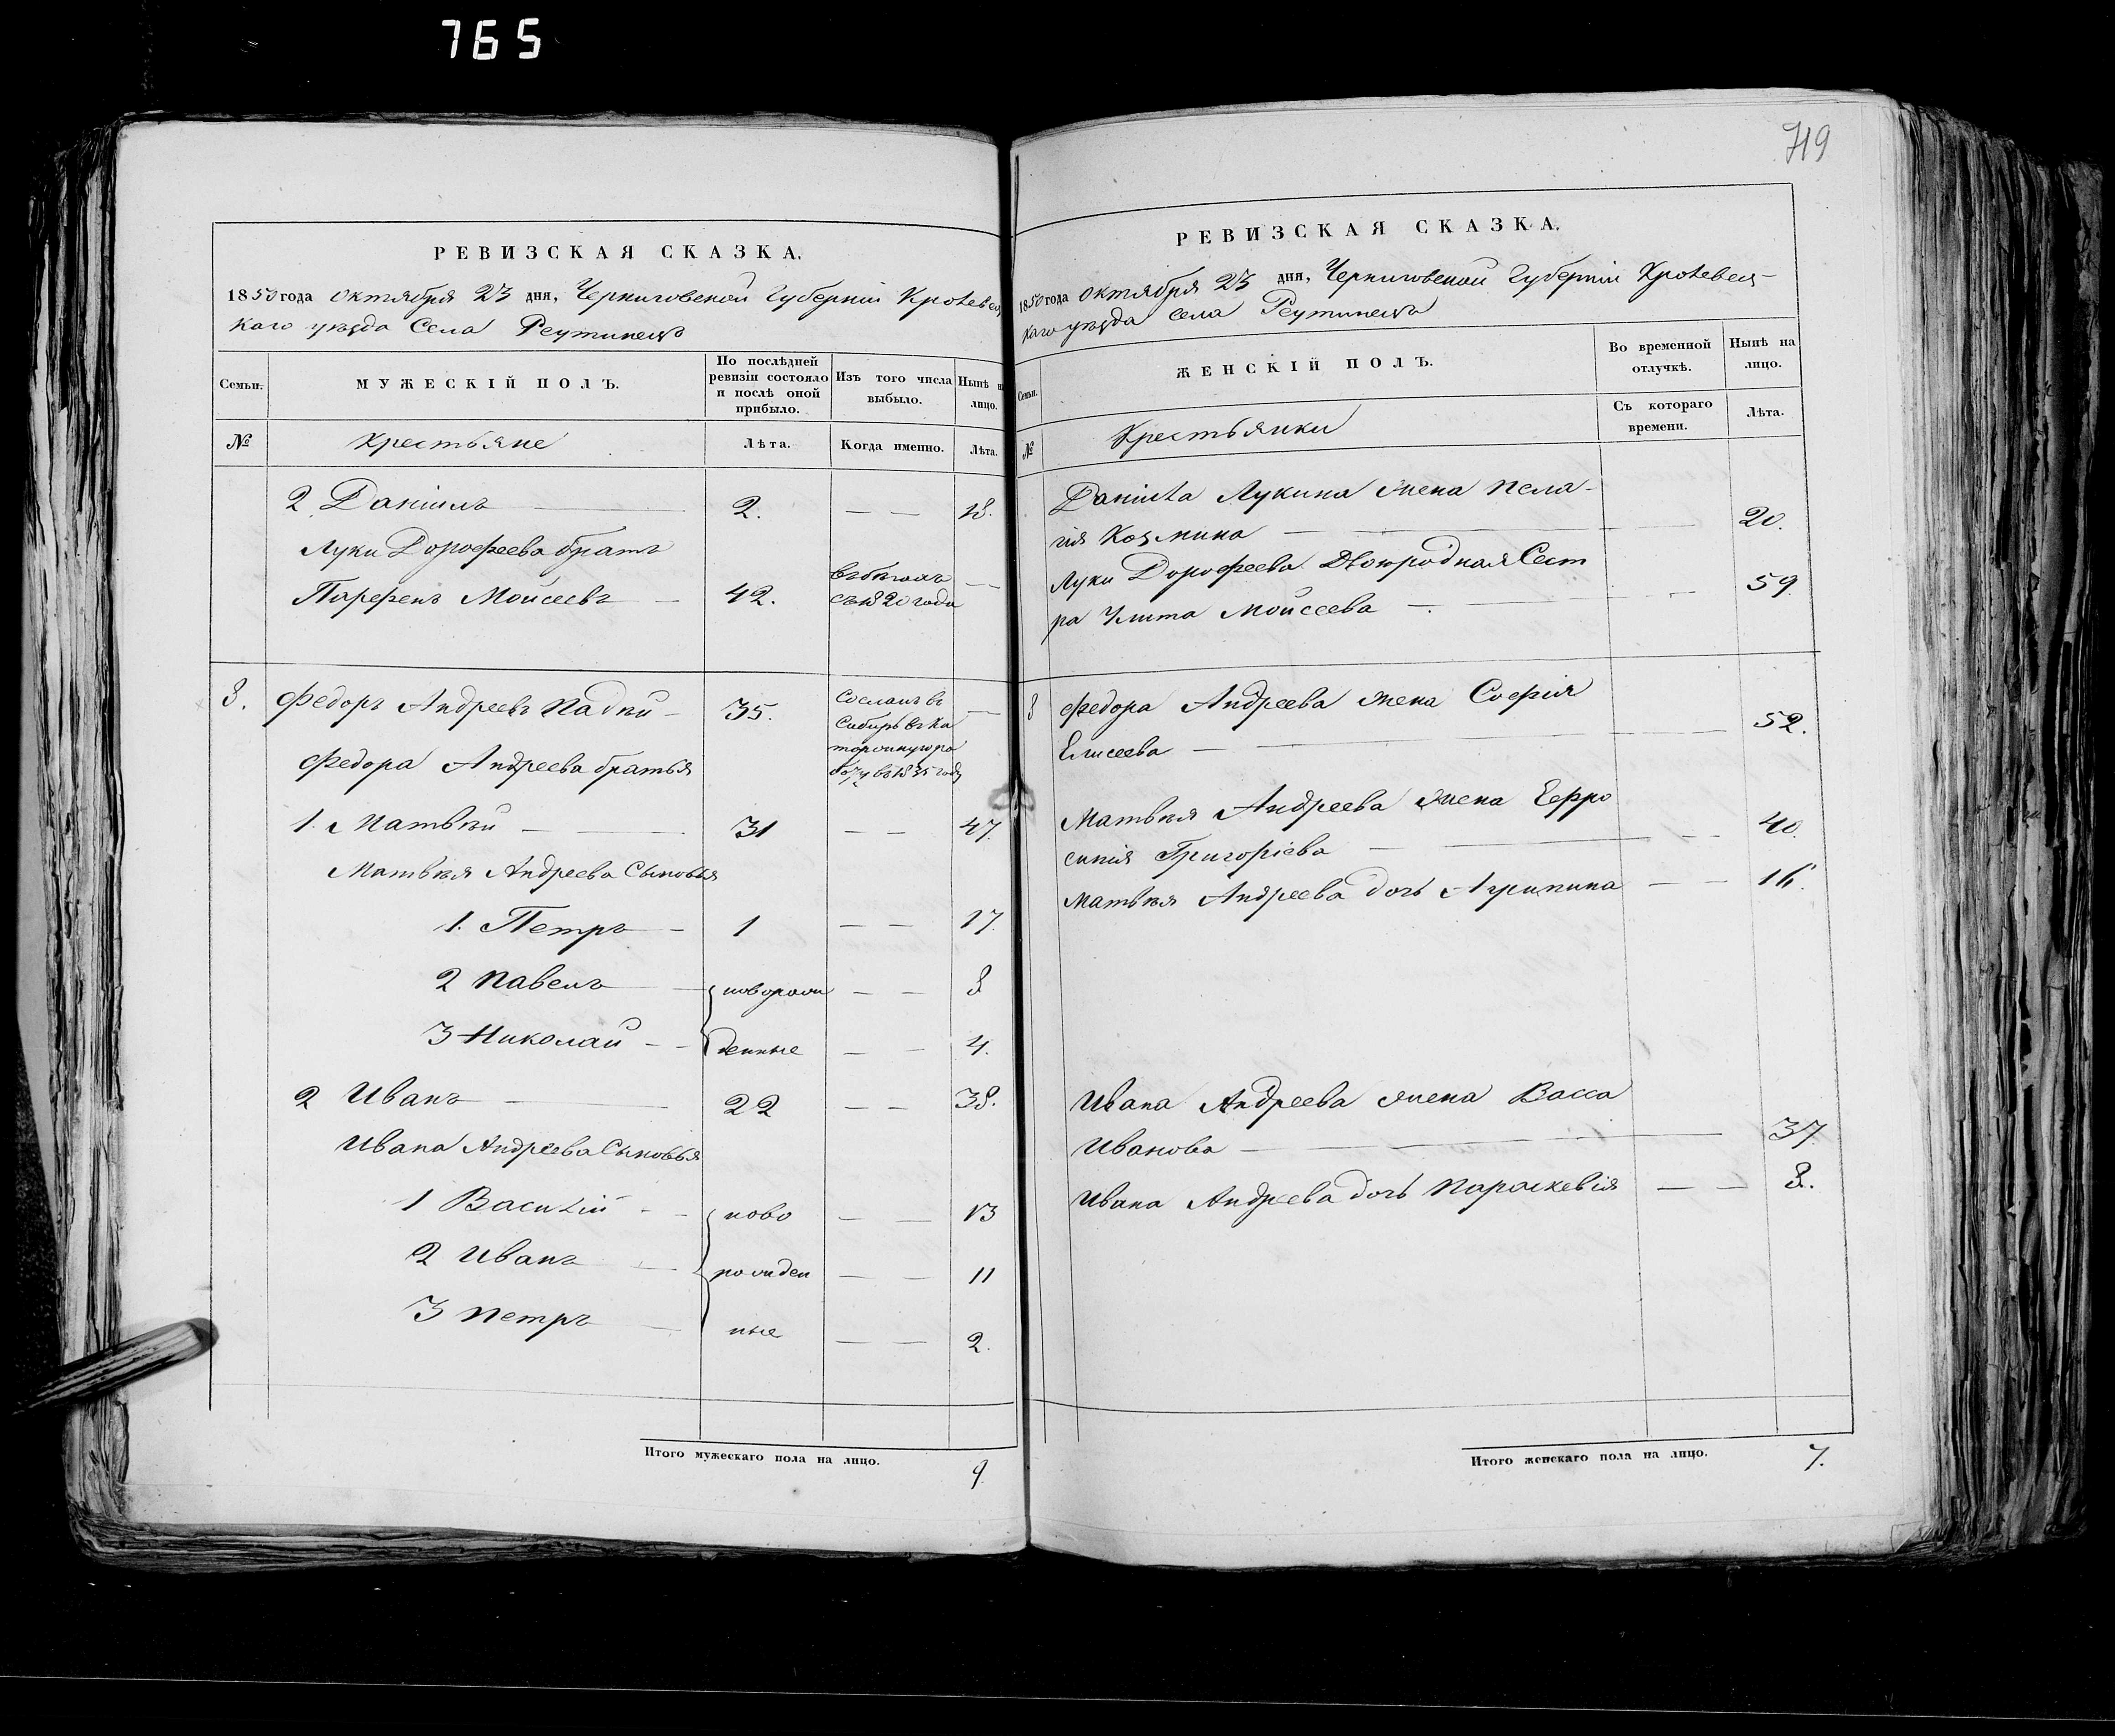 765
719
РЕВИЗСКАЯ СКАЗКА.
1850 года октября 23 дня, Черниговской Губернии Кролевец
каго уезда Села Реутинецъ
Семьи.
МУЖЕСКІЙ ПОЛЪ.
По послѣдней ревизіи состояло и послѣ оной прибыло.
Изъ того числа выбыло.
Нынѣ на лицо.
№
Крестьяне
Лѣта.
Когда именно.
Лѣта.
2 Даніилъ 2. — — 18.
Луки Дорофеева братъ
Парфенъ Моисеевъ — 42. въ бегахъ съ 1820 года —
8. Федоръ Андреевъ Падпій — 35. Сосланъ въ —
Сибирь въ ка
торжную ра
боту въ 1835 году
Федора Андреева братья
1. Матвѣй — 31 — — 47.
Матвѣя Андреева Сыновья
1. Петръ — 1 — — 17.
2 Павелъ — новорож — — 8
3 Николай — — денные — — 4.
2 Иванъ — 22 — — 38.
Ивана Андреева Сыновья
1 Василій — — ново — — 13
2 Иванъ — рожден — — 11
3 Петръ — ные — — 2.
Итого мужескаго пола на лицо. 9.
РЕВИЗСКАЯ СКАЗКА.
1850 года октября 23 дня, Черниговской Губерніи Кролевец-
каго уѣзда села Реутинецъ
Семьи.
ЖЕНСКІЙ ПОЛЪ.
Во временной отлучкѣ.
Нынѣ на лицо.
№
Крестьянки
Съ котораго времени.
Лѣта.
Даниила Лукина жена Пела-
гія Козмина — 20.
Луки Дорофеева Двоюродная Сест
ра Улита Моисеева — 59.
8 Федора Андреева жена Софія
Елисеева — 52.
Матвѣя Андреева жена Евфро
синія Григоріева — 40.
Матвѣя Андреева дочь Агрипина — — 16.
Ивана Андреева жена Васса
Иванова — 37.
Ивана Андреева дочь Параскевія — — 8.
Итого женскаго пола на лицо. 7.